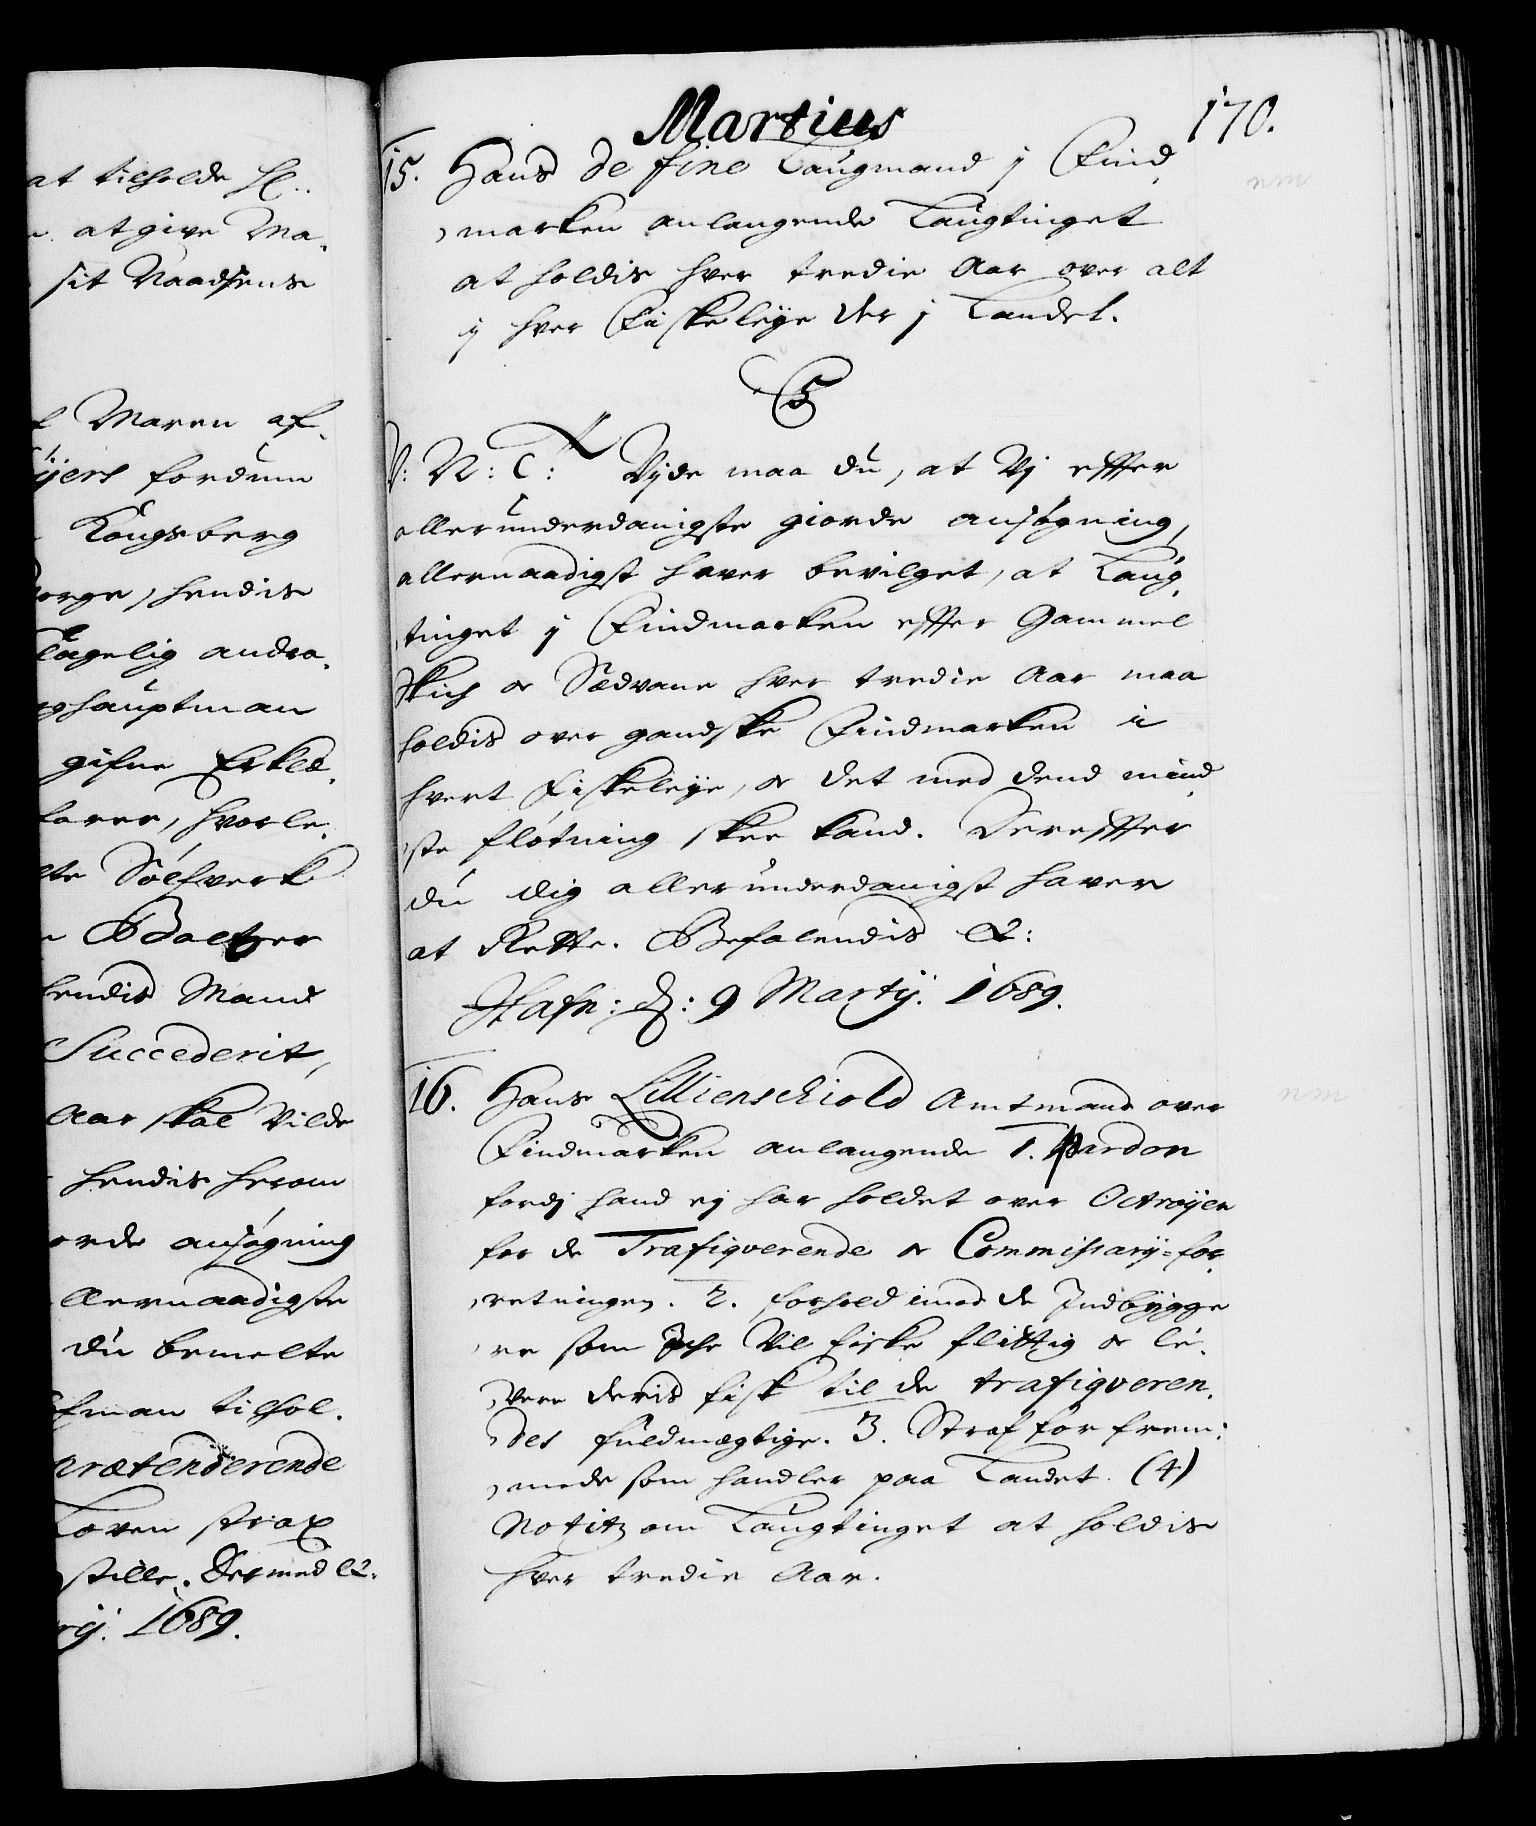 at tilholde
at give Ma-
sit Naadsens
Maren af-
ijers fordum
Kongsberg
orge, hendis
lagelig andra-
ghauptman
gifne Erklæ-
larer, hvorle-
lte Sölfverk
Baltzer
hendis Mand
Succederit,
Aar skal Vilde
hendis herom
orde ansögning
llernaadigste
du bemelte
fman tilhol-
prætenderende
Loven strax
stille. Dermed &:
rij. 1689.
Martius
170.
15. Hans de fine Laugmand j Find-
marken anlangende Laugtinget
at holdis hver tredie Aar over alt
ij hver Fiskeleye der j Landet.
C5
V: N: C: Vijde maa du, at Vj effter
allerunderdanigste giorde ansögning,
allernaadigst haver bevilget, at Laug-
tinget ij Findmarken effter Gammel
Skich oc Sædvane hver tredie Aar maa
holdis over gandske Findmarken i
hvert Fiskeleye, oc det med dend mind-
ste flötning skee kand. Dereffter
du dig allerunderdanigst haver
at Rette. Befalendis &:
Hafn: d: 9 Martij. 1689.
16. Hans Lillienschiold Amtmand over
Findmarken anlangende 1. Pardon
fordj hand ej har holdet over Octroijen
for de Trafiqverende oc Commissarij-for-
retningen. 2. forhold imod de Indbygge
re som iche Vil fiske flittig oc le-
vere deris fisk til de trafiqveren-
des fuldmægtige. 3. Straf for frem-
mede som handler paa Landet. (4)
Notitz om Laugtinget at holdis
hver tredie Aar.
nm
nm